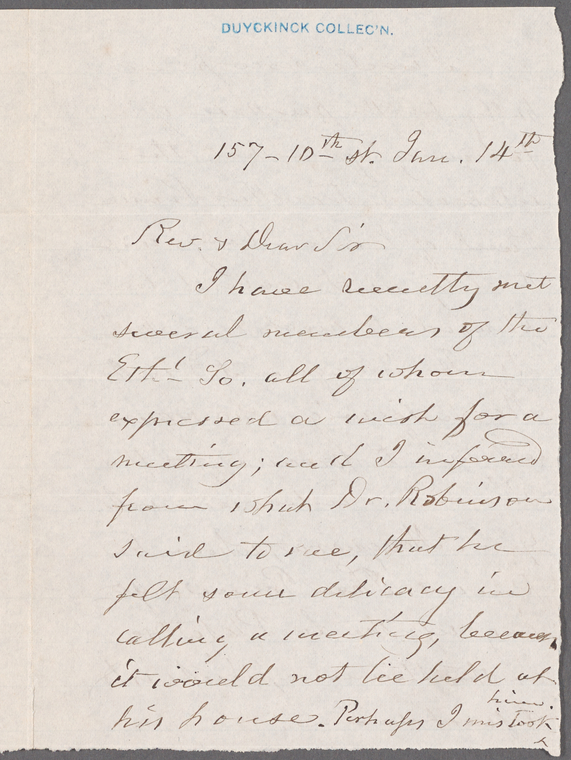 DUYCKINCK COLLEC'N.
157-10th st. Jan. 14th
Rev. & Dear Sir
I have recently met
several members of the
Ethl So. all of whom
expressed a wish for a
meeting; and I inferred
from what Dr. Robinson
said to me, that he
felt some delicacy in
calling a meeting, because
it would not be held at
his house. Perhaps I mistook
him.